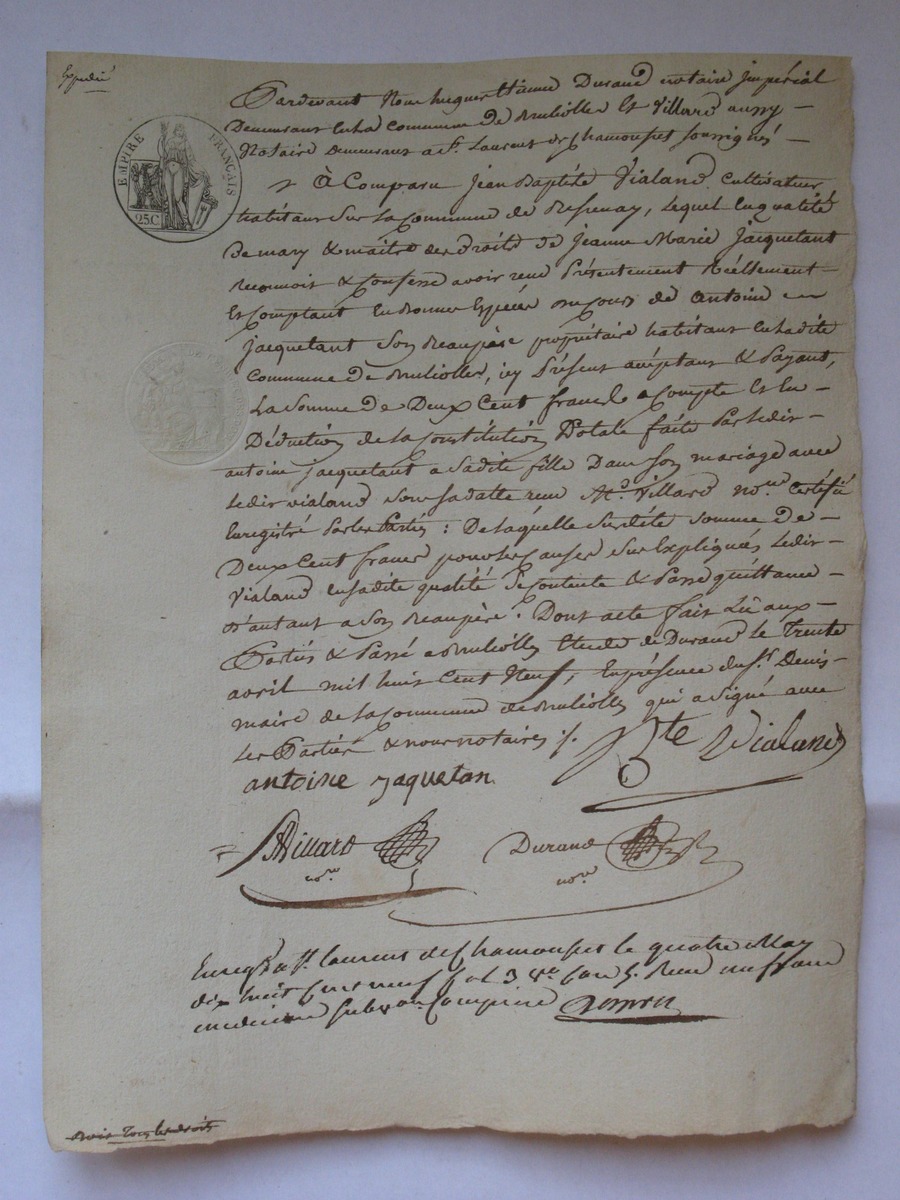 Expedié
EMPIRE FRANÇAIS
25.C
Pardevant Nous hugues Etienne Durand notaire Jmpérial
Demeurant en la Commune de Et Villard aussy
Notaire Demeurant a St. Laurent des Chamousset soussignés
À Comparu Jean Baptiste Vialand Cultivateur
habitant sur La Commune de lequel En qualité
De mary & maitre des droits de Jeanne Marie Jacquetant
reconnoit & Confesse avoir recu Présentement Réellement
Et Comptant En bonnes Espèces en Cours de Antoine
jacquetant Son Beaupère propriétaire habitant En ladite
Commune de , icy Présent acceptant & Payant,
La Somme de Deux Cent francs a Compte Et En
Déduction de La Constitution Dotale faite Par ledit
antoine jacquetant a Sadite fille Dans Son mariage avec
Ledit vialand sous sa datte recu Me. Villard nore. Certifié
Enregistré Par les Parties : De laquelle Susdite Somme de
Deux Cent francs pour les Causes Sus Expliquées Ledit
Vialand En sadite qualité Se Contente & Passe quittance
D'autant a Son Beaupère. Dont acte fait Lû aux
Parties & Passé a Etude de Durand Le Trente
avril mil huit Cent Neuf, En présence du Sr. Denis
maire de La Commune de qui a Signé avec
Les Parties & nous notaires
Bte Vialand
antoine jaquetan
Villard
nore
Durand
nore
Enregé a St. laurent de Chamousset le quatre May
dix huit Cent neuf fol 3 vo. Case 5. Recu un franc
Subvon. Comprise
Bon pour Tous les droits